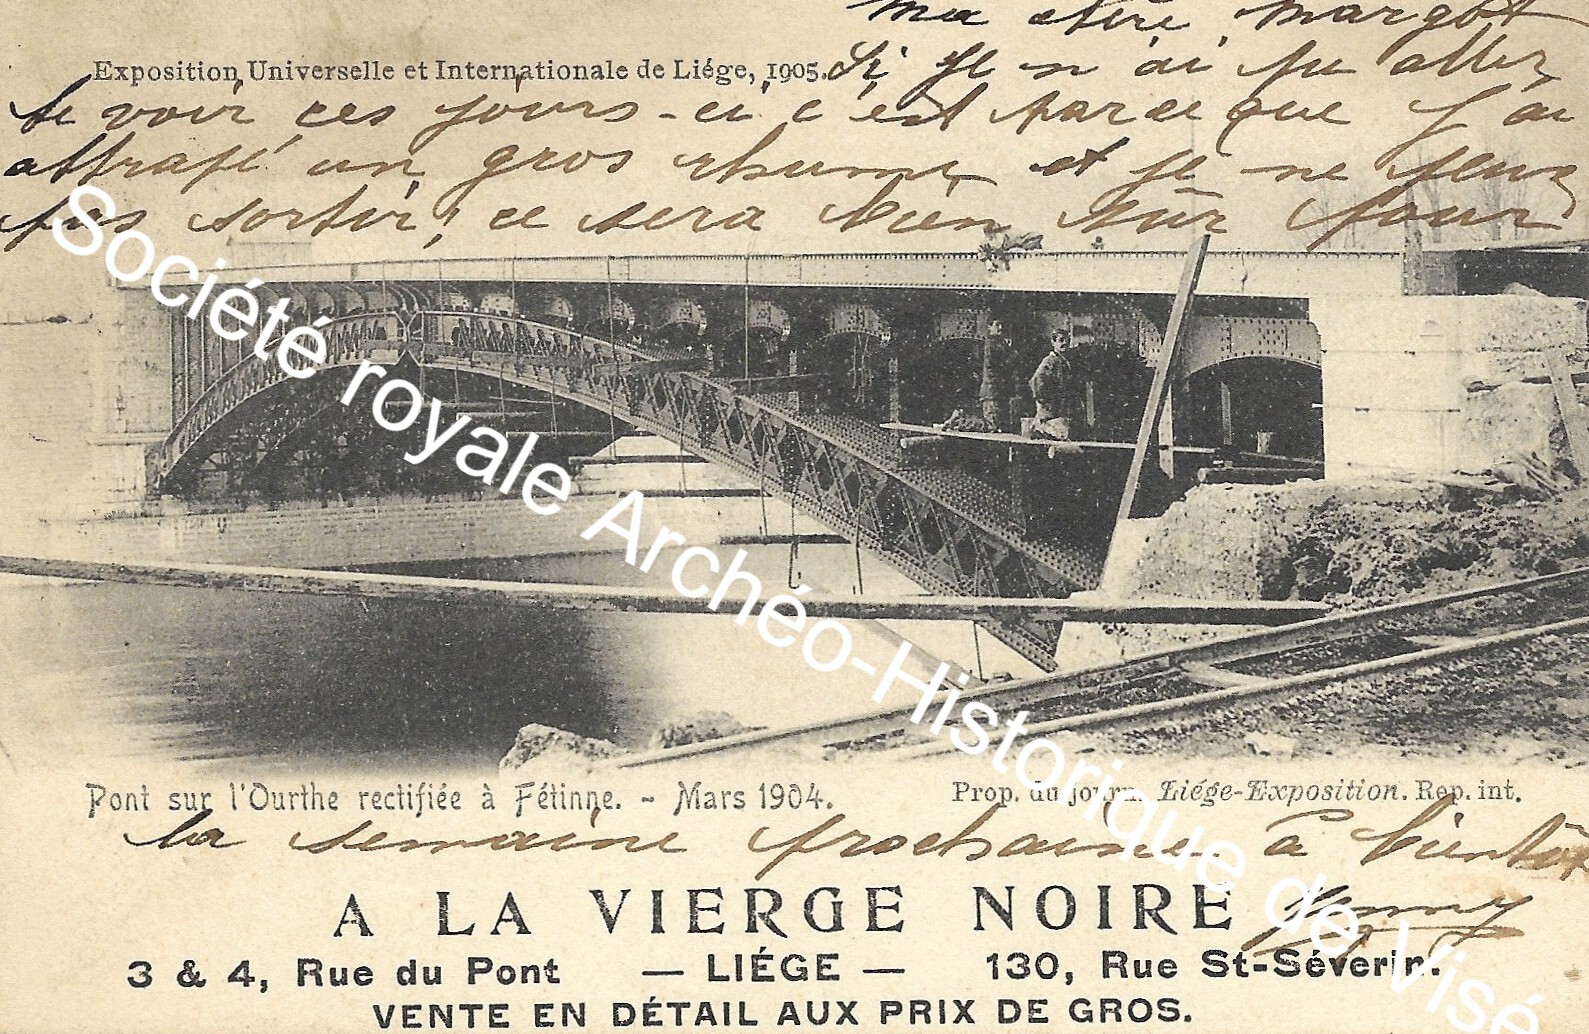 ma chère margot
Exposition Universelle et Internationale de Liége, 1905.
Si je n'ai pu aller
te voir ces jours-ci c'est parce que j'ai
attrapé un gros rhume et je ne peux
pas sortir, ce sera bien sûr pour
Société royale Archéo-Historique de Visé
Pont sur l'Ourthe rectifiée à Fétinne. - Mars 1904.
Prop. du journ. Liége-Exposition. Rep. int.
la semaine prochaine à bientôt
Jenny
A LA VIERGE NOIRE
3 & 4, Rue du Pont — LIÉGE — 130, Rue St-Séverin.
VENTE EN DÉTAIL AUX PRIX DE GROS.